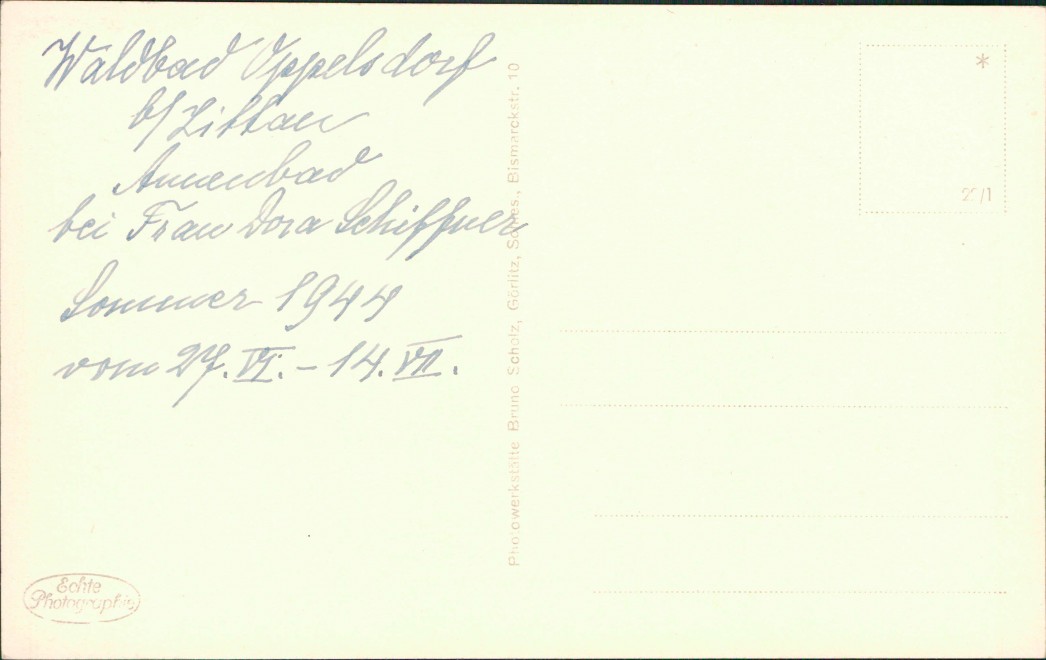 Waldbad Oppelsdorf
b/Zittau
Annenbad
bei Frau Dora Schiffner
Sommer 1944
vom 27. VI. - 14. VII.
Photowerkstätte Bruno Scholz, Görlitz, Schles., Bismarckstr. 10
*
Echte
Photographie